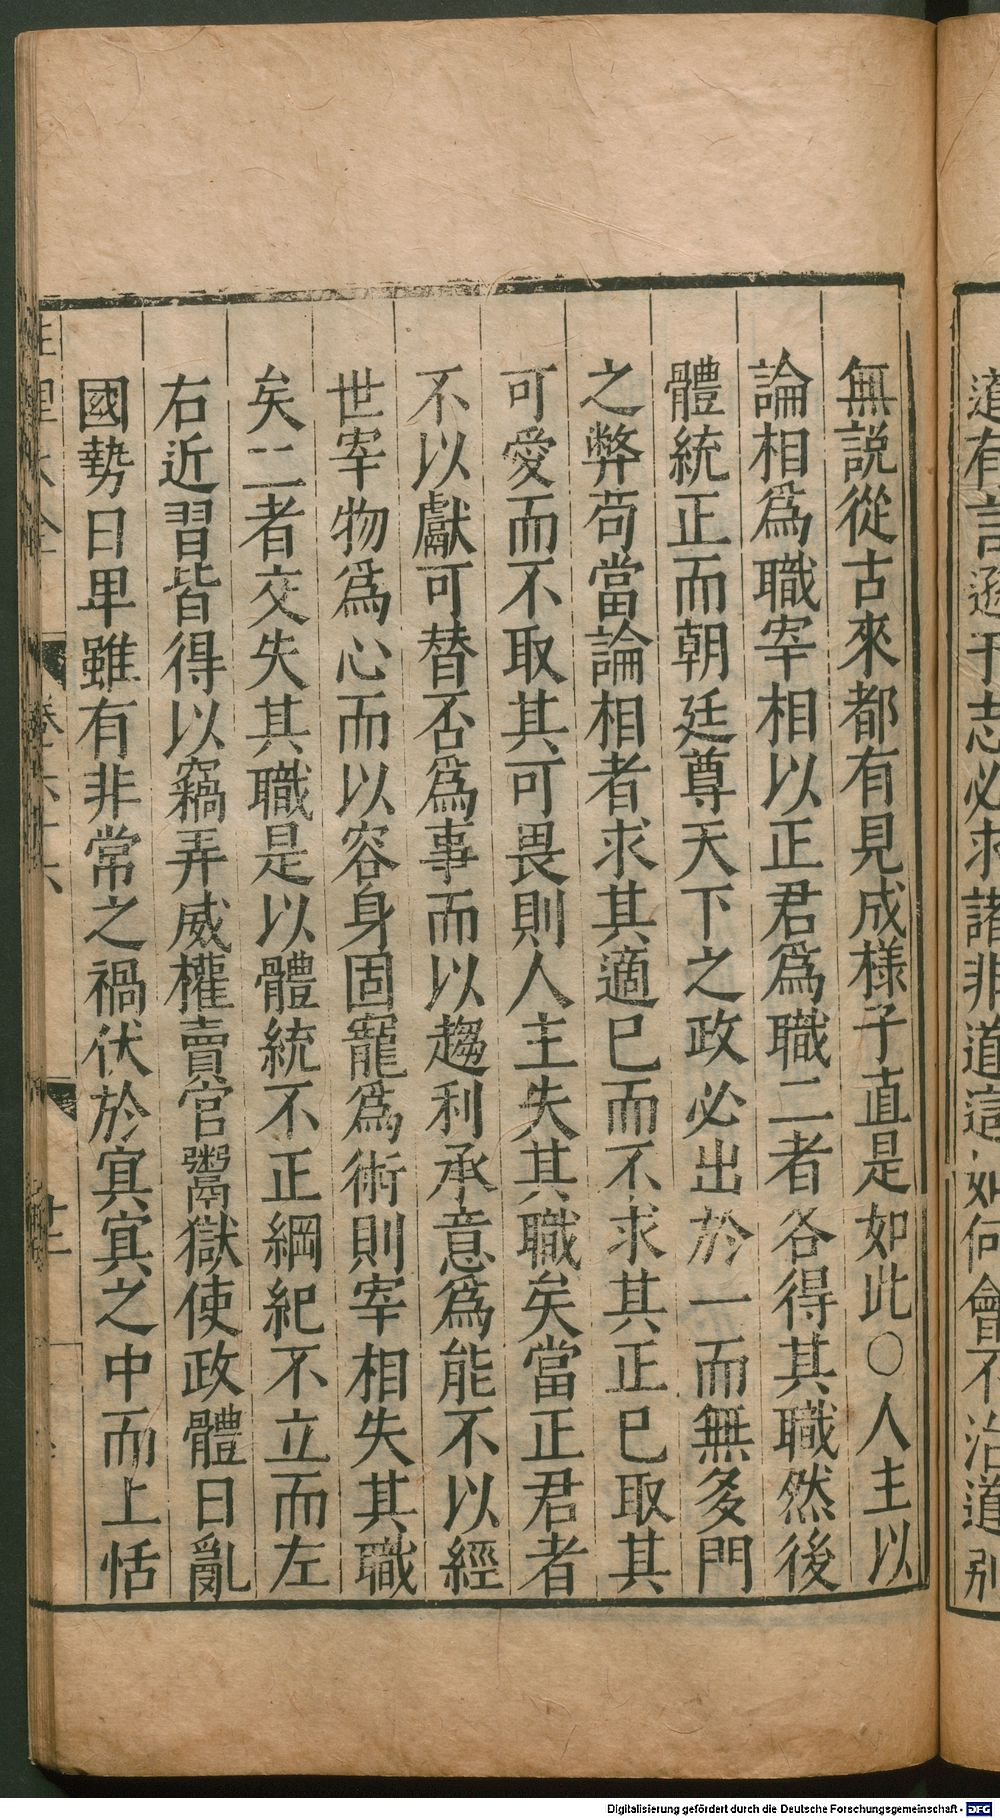 道有言遜于志必求諸非道這如何會不治道別
無説從古來都有見成樣子直是如此○人主以
論相爲職宰相以正君爲職二者各得其職然後
體統正而朝廷尊天下之政必出於一而無多門
之弊苟當論相者求其適已而不求其正已取其
可愛而不取其可畏則人主失其職矣當正君者
不以獻可替否爲事而以趨利承意爲能不以經
世宰物爲心而以容身固寵爲術則宰相失其職
矣二者交失其職是以體統不正綱紀不立而左
右近習皆得以竊弄威權賣官鬻獄使政體日亂
國勢日卑雖有非常之禍伏於冥冥之中而上恬
性理大全 卷六十六 廿二
Digitalisierung gefördert durch die Deutsche Forschungsgemeinschaft - DFG